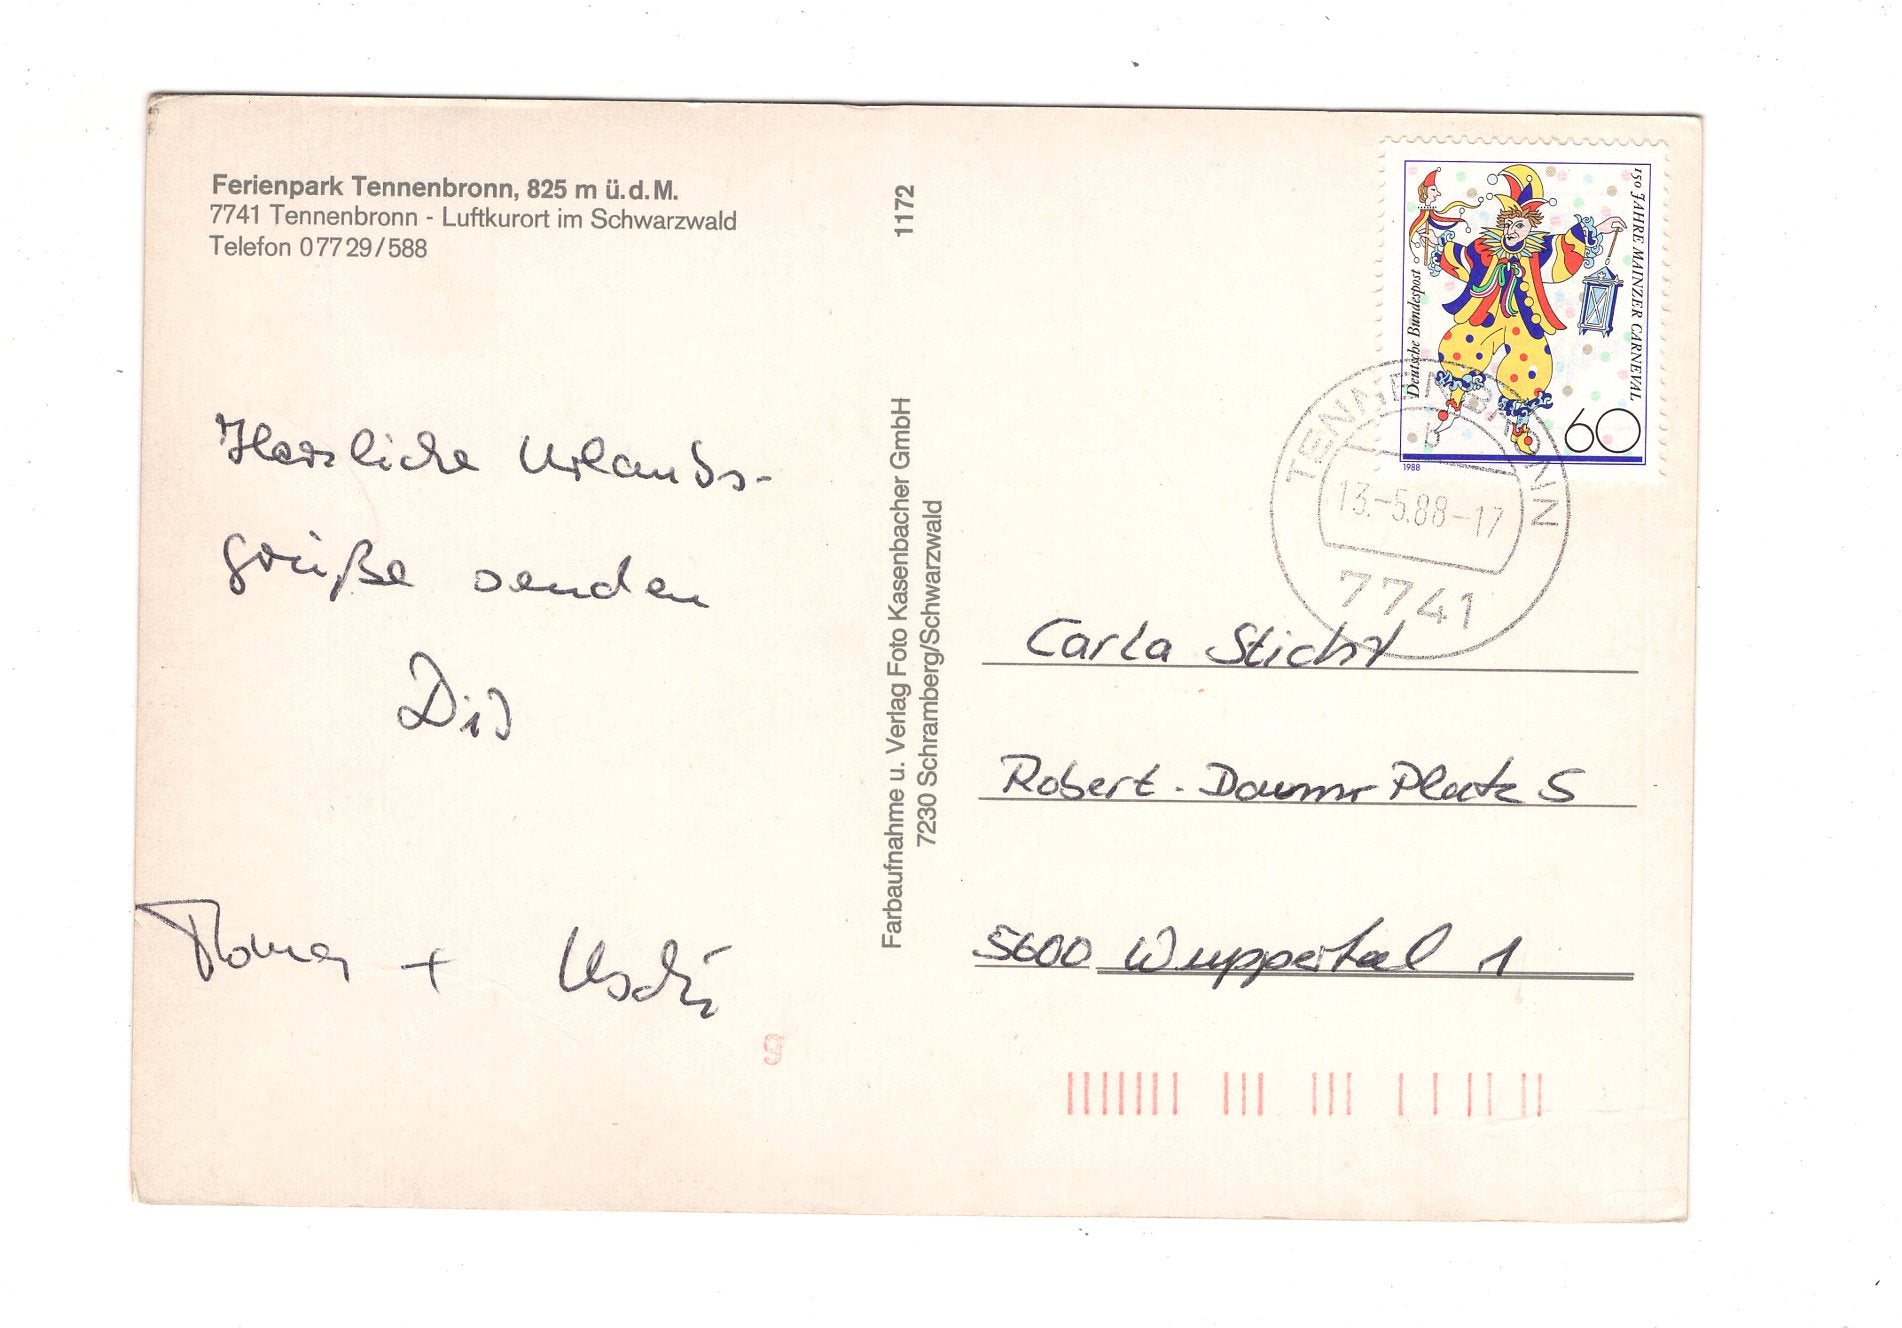 Ferienpark Tennenbronn, 825 m ü.d.M.
7741 Tennenbronn - Luftkurort im Schwarzwald
Telefon 07729/588
1172
Farbaufnahme u. Verlag Foto Kasenbacher GmbH
7230 Schramberg/Schwarzwald
Herzliche Urlaubs-
grüße senden
Dir
Thomas + Uschi
150 JAHRE MAINZER CARNEVAL
Deutsche Bundespost
60
1988
TENNENBRONN
b
13.-5.88-17
7741
Carla Sticht
Robert-Daum-Platz 5
5600 Wuppertal 1
9